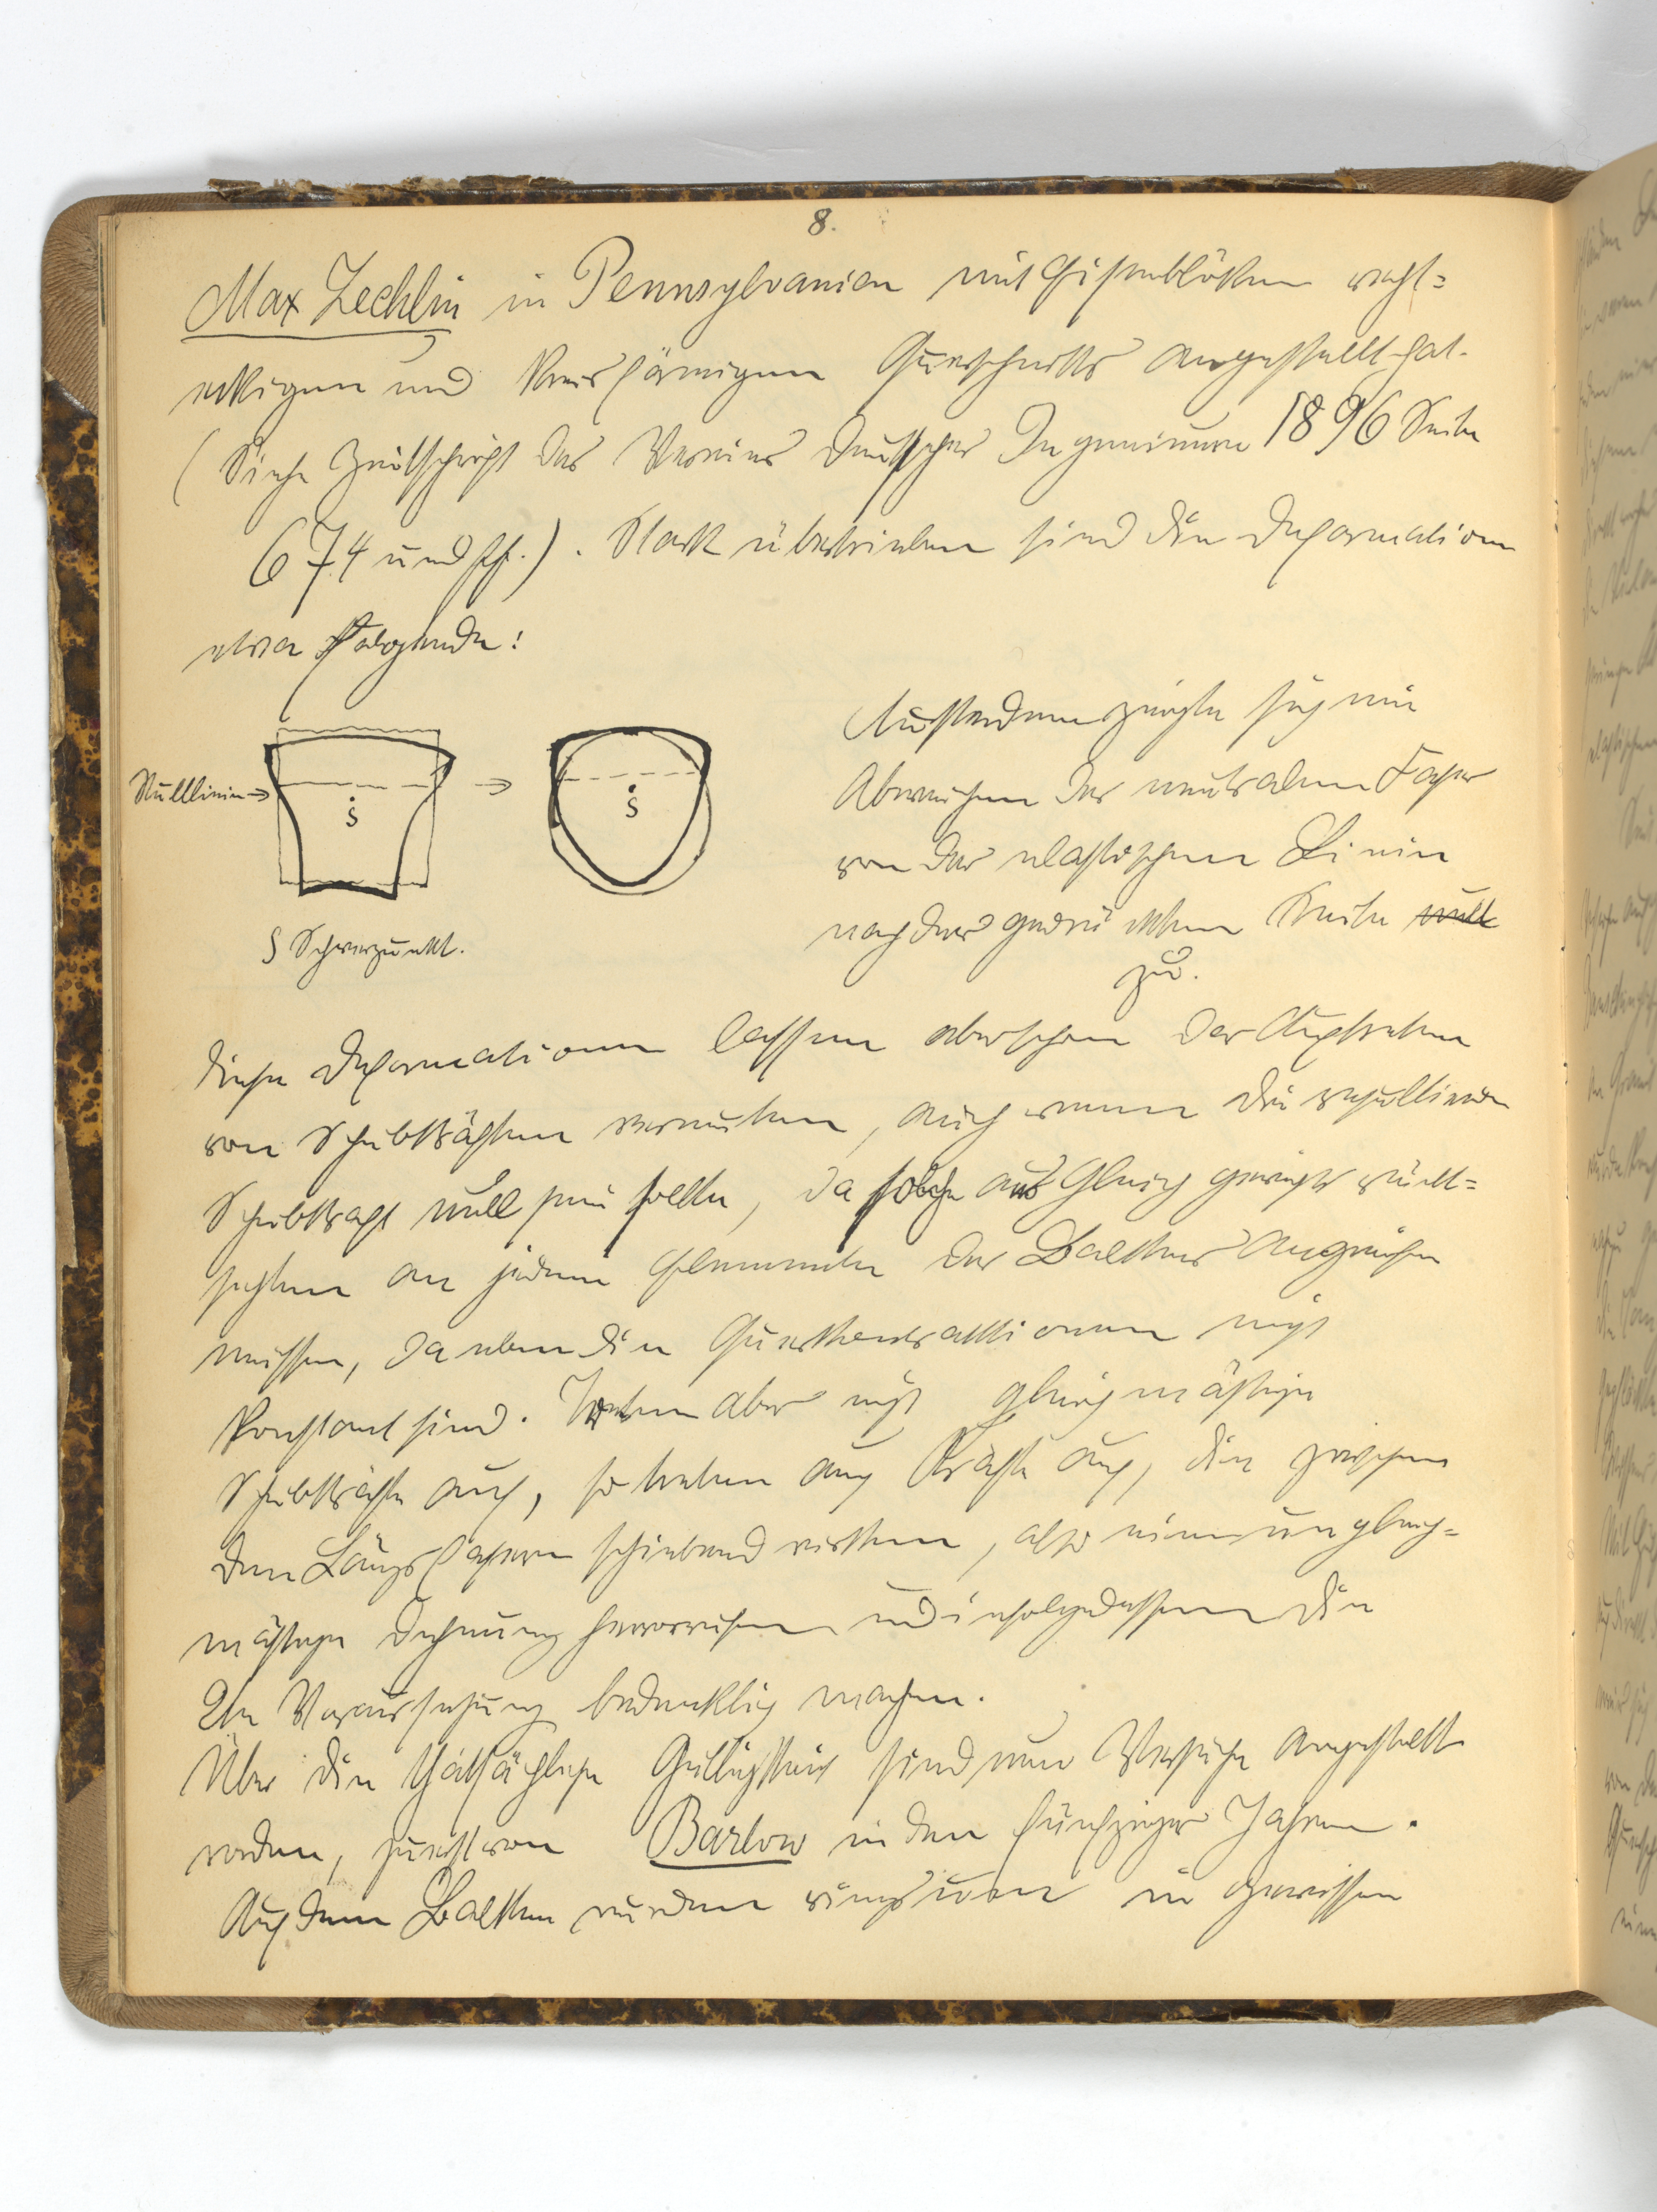 8.
Max Zechlin in Pennsylvanien mit Eisenblöcken recht=
eckigen und kreisförmigen Querschnitts angestellt hat.
(Siehe Zeitschrift des Vereines deutscher Ingenieure 1896 Seite
674 und ff.). Stark übertrieben sind die Deformationen
etwa folgende:
Nulllinie →
S
→
S
S Schwerpunkt.
Ausserdem zeigte sich ein
Abweichen der neutralen Faser
von der elastischen Linie
nach der gedrückten Seite
zu.
Diese Deformationen lassen aber schon das Auftreten
von Schubkräften vermuten, auch wenn die resultierende
Schubkraft null sein sollte, da solche aus Gleichgewichtsrück=
sichten an jedem Elemente des Balkens angreifen
müssen, da eben die Querkontraktionen nicht
konstant sind. Treten aber nicht gleichmässige
Schubkräfte auf, so treten auch Kräfte auf, die zwischen
den Längsfasern schiebend wirken, also eine ungleich=
mässige Dehnung hervorrufen und infolgedessen die
2te Voraussetzung bedenklich machen.
Über die thatsächliche Gültigkeit sind nun Versuche angestellt
worden, zuerst von Barlow in den fünfziger Jahren.
Auf dem Balken wurden ringsum in gewissen